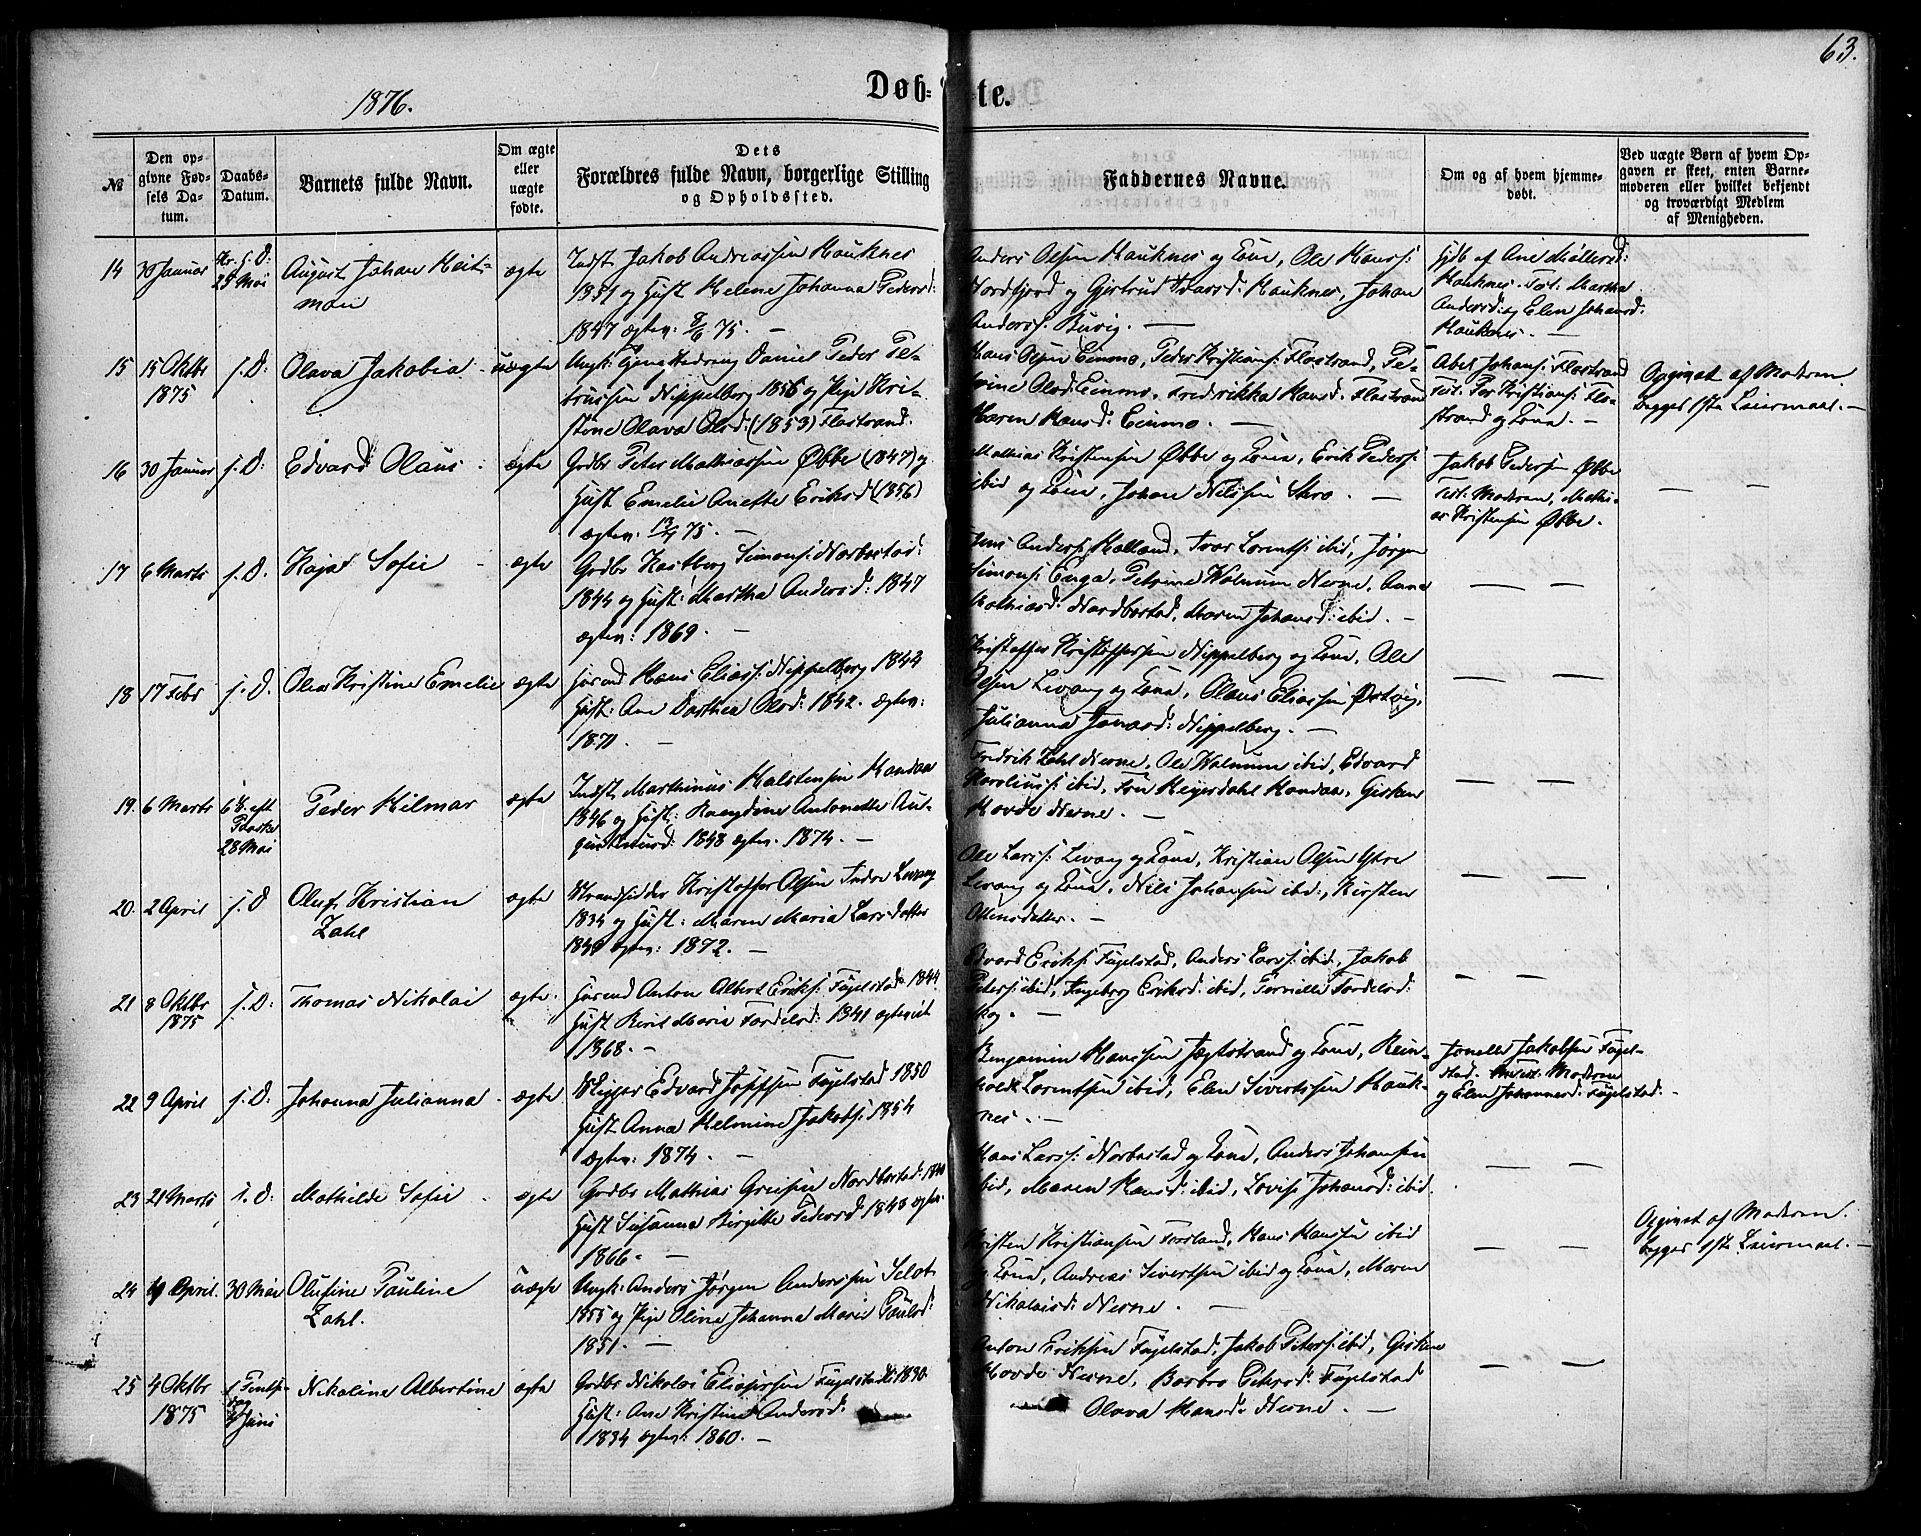 63.
1876.
Døb- te.
№
Den op-
givne Fød-
sels Da-
tum.
Daabs-
Datum.
Barnets fulde Navn.
Om ægte
eller
uægte
fødte.
Dets
Forældres fulde Navn, borgerlige Stilling
og Opholdssted.
Faddernes Navne.
Om og af hvem hjemme-
døbt.
Ved uægte Børn af hvem Op-
gaven er skeet, enten Barne-
moderen eller hvilket bekjendt
og troværdigt Medlem
af Menigheden.
14 30 Januar Kr. H. D: 25 Mai August Johan Heit-
man
ægte
Indst Jakob Andreassen Hauknes
1851 og Hust Helene Johanna Pedersd:
1847 ægtev: 8/6 75. —
Anders Olsen Hauknes og Kone, Ole Hanss:
Nordfjord og Gjertrud Ivarsd: Hauknes, Johan
Anderss: Buvig. —
Hjdb af Ane Mikkelsd:
Hauknes. Test. Martha
Andersd: og Elen Johansd:
Hauknes. —
15 15 Oktbr
1875
s. D: Olava Jakobia uægte
Ungk: Daniel Peder Pe-
trussen Nippelberg 1856 og Pige Kri-
stine Olava Olsd: (1853) Flostrand.
Hans Olsen Einmo, Peder Kristians: Flostrand, Pe-
trine Olsd: Einmo, Fredrikka Hansd: Flostrand
Maren Hansd: Einmo. —
Abel Johans: Flostrand
Test. Per Kristians: Flo-
strand og Kone. —
Opgivet af Modren.
begges 1ste Leiermaal. —
16 30 Januar s. D: Edvard Olaus ægte
Grdbr Peter Mathiassen Øbbe (1847) og
Hust Emelie Anette Eriksd (1856)
ægtev: 13/4 75. —
Mathias Kristensen Øbbe og Kone, Erik Peders:
ibid og Kone, Johan Nilssen —
Jakob Pedersen Øbbe
Test: Modren, Mathi-
as Kristensen Øbbe.
— —
17 6 Marts s. D. Kaja Sofie ægte
Grdbr Hartvig Simons: Norbostad:
1844 og Hust: Martha Andersd: 1847
ægtev: 1869. —
Jens Anders: Halland, Ivar Lorents: ibid, Jørgen
Simons: Enga, Petrine Walnum Nesne, Anna
Mathiasd: Nordbostad, Maren Johansd: ibid. —
— —
18 17 Febr s. D. Olea Kristine Emelie ægte
Gaard Hans Elias: Nippelberg 1842
Hust: Ane Dorthea Olsd: 1842. ægtev:
1870. —
Kristoffer Kristoffersen Nippelberg og Kone, Ole
Olsen Levang og Kone, Olaus Eliassen Østvig,
Julianna Jonasd: Nippelberg. —
— —
19. 6 Marts 6 S. eft
Paaske
28 Mai
Peder Hilmar ægte
Indst Marthinus Halstensen Handaa
1846 og Hust: Rangdine Antonette Au-
gustinusd: 1848 ægtev. 1874. —
Fredrik Zahl Nesne, Ole Walnum ibid, Edvard
Karolius: ibid, Frú Heyerdahl Handaa, Gisken
Hovde Nesne. —
— —
20. 2 April s. D Oluf Kristian
Zahl
ægte
Strandsidder Kristoffer Olsen Indre Levang
1834 og Hust: Maren Maria Larsdatter
1849 ægtev: 1872. —
Ole Lars: Levang og Kone, Kristian Olsen Ytre
Levang og Kone, Nils Johansen ibid., Kirsten
Ottensdatter. —
— —
21 8 Oktbr
1875
s. D: Thomas Nikolai ægte.
Gaard Anton Albert Eriks: Fugelstad: 1844
Hust Berit Maria Tordelsd: 1841 ægteviet
1868. —
Edvard Eriks: Fugelstad, Anders Lars: ibid, Jakob
Peters: ibid, Ingeborg Eriksd: ibid, Pernille Tordelsd:
Skog. —
— —
22 9 April s. D. Johanna Julianna ægte
Edvard Josefsen Fugelstad 1850
Hust Anna Helmine Jakobs: 1854
ægtev: 1874. —
Benjamin Hanssen Jægtstrand og Kone, Rein-
holdt Lorentsen ibid, Elen Sivertssen Hauk-
nes. —
Jonelle Jakobsen Fugel-
stad. Test: Modren
og Elen Johannesd: Fugelstad. —
23 21 Marts s. D. Mathilde Sofie ægte
Grdbr Mathias Greisen Nordbostad: 1840
Hust Susanna Birgitte Pedersd 1843 ægtev.
1866. —
Hans Lars: Norbostad og Kone, Anders Johansen
ibid, Maren Hansd: ibid, Lovise Johansd: ibid.
— —
24 19 April 30 Mai Olufine Pauline
Zahl.
uægte
Ungk: Anders Jørgen Anderssen Selot
1855 og Pige Oline Johanna Marie Paulsd:
1851. —
Kristen Kristiansen Forsland, Hans Hanssen ibid
og Kone, Andreas Sivertsen ibid og Kone, Maren
Nikolaisd: Nesne. —
— —
Opgivet af Modren.
begges 1ste Leiermaal. —
25 4 Oktbr
1875
1 Pintse-
dag
4 Juni
Nikoline Albertine ægte
Grdbr Nikolai Eliassen Fugelstad: 1830
Hust: Ane Kristine Andersd:
1834 ægtev: 1860. —
Anton Eriksen Fugelstad, Jakob Peters: ibid, Gisken
Hovde Nesne, Barbro Petersd: Fugelstad
Olava Hansd: Nesne. —
— —